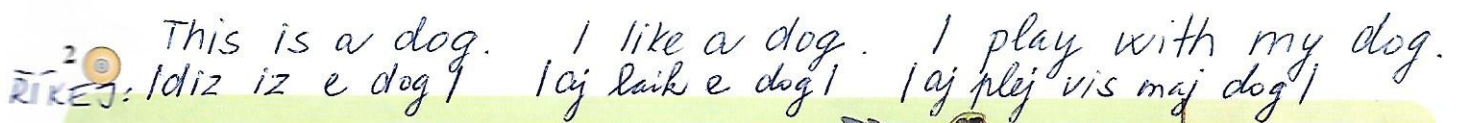 This is a dog. I like a dog. I play with my dog.
2
ŘÍKEJ: /diz iz e dog/ /aj laik e dog/ /aj plej vis maj dog/